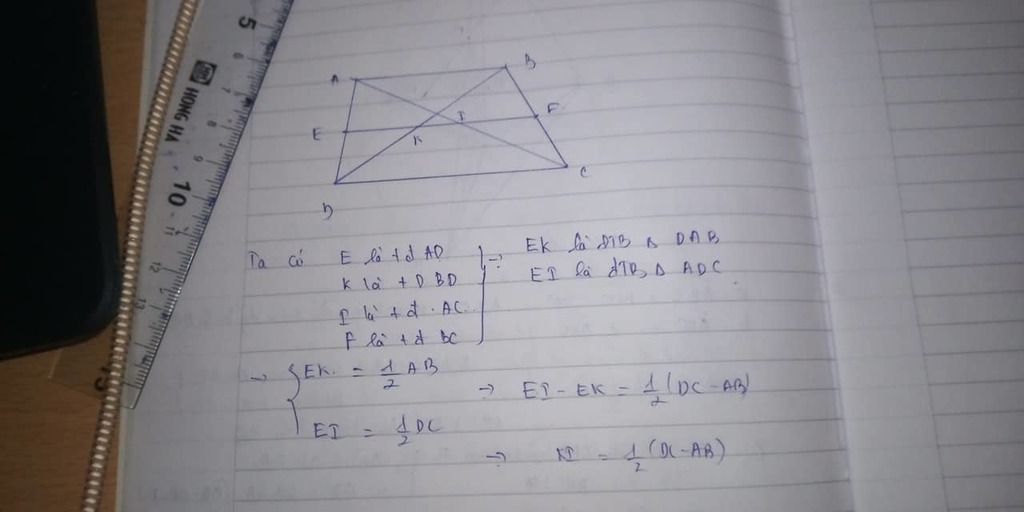 5
6
7
8
9
10
11
12
13
HONG HA
A B
E K I F
D C
Ta có E là tđ AD
K là tĐ BD
I là tđ. AC
F là tđ BC
=> EK là ĐTB Δ DAB
EI là đTB Δ ADC
→ { EK. = 1/2 AB
EI = 1/2 DC
→ EI - EK = 1/2 (DC - AB)
→ KI = 1/2 (DC - AB)